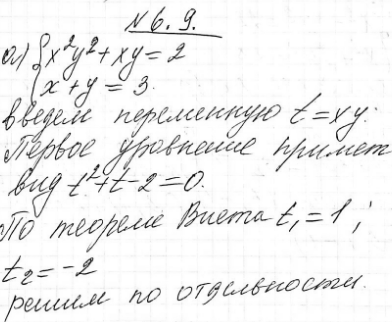 №6.9.
а) { x²y² + xy = 2
x + y = 3.
введем переменную t = xy.
Первое уравнение примет
вид t² + t - 2 = 0.
По теореме Виета t₁ = 1;
t₂ = -2
решим по отдельности.